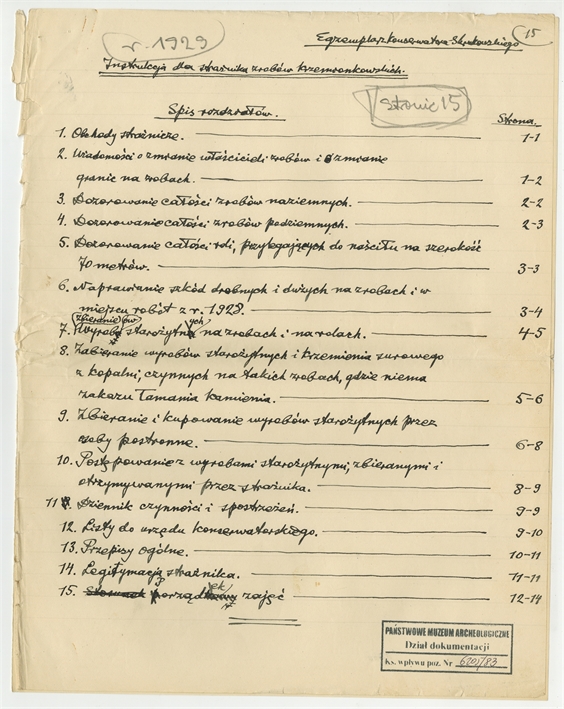 15
r. 1929
Egzemplarz konserwatora Skrakowskiego
Instrukcja dla strażnika zrobów krzemionkowskich.
stronic 15
Spis rozdziałów.
Strona.
1. Obchody strażnicze. 1-1
2. Wiadomości o zmianie właścicieli zrobów i o zmianie
granic na zrobach. 1-2
3. Dozorowanie całości zrobów naziemnych. 2-2
4. Dozorowanie całości zrobów podziemnych. 2-3
5. Dozorowanie całości roli, przylegających do na szerokość
70 metrów. 3-3
6. Naprawianie szkód drobnych i dużych na zrobach i w
miejscu robót z r. 1928. 3-4
7. Zbieranie wyrobów starożytnych na zrobach i na rolach. 4-5
8. Zabieranie wyrobów starożytnych i krzemienia surowego
z kopalni, czynnych na takich zrobach, gdzie niema
zakazu łamania kamienia. 5-6
9. Zbieranie i kupowanie wyrobów starożytnych przez
osoby postronne. 6-8
10. Postępowanie z wyrobami starożytnymi, zbieranymi i
otrzymywanymi przez strażnika. 8-9
11. Dziennik czynności i spostrzeżeń. 9-9
12. Listy do urzędu konserwatorskiego. 9-10
13. Przepisy ogólne. 10-11
14. Legitymacja strażnika. 11-11
15. Porządek zajęć 12-14
PAŃSTWOWE MUZEUM ARCHEOLOGICZNE
Dział dokumentacji
Ks. wpływu poz. Nr 6201/83